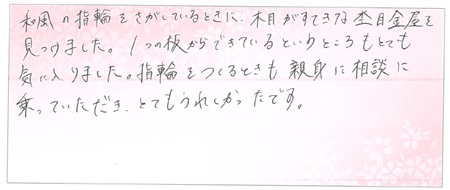 和風の指輪をさがしているときに、木目がすてきな杢目金屋を
見つけました。1つの板からできているというところもとても
気に入りました。指輪をつくるときも親身に相談に
乗っていただき、とてもうれしかったです。